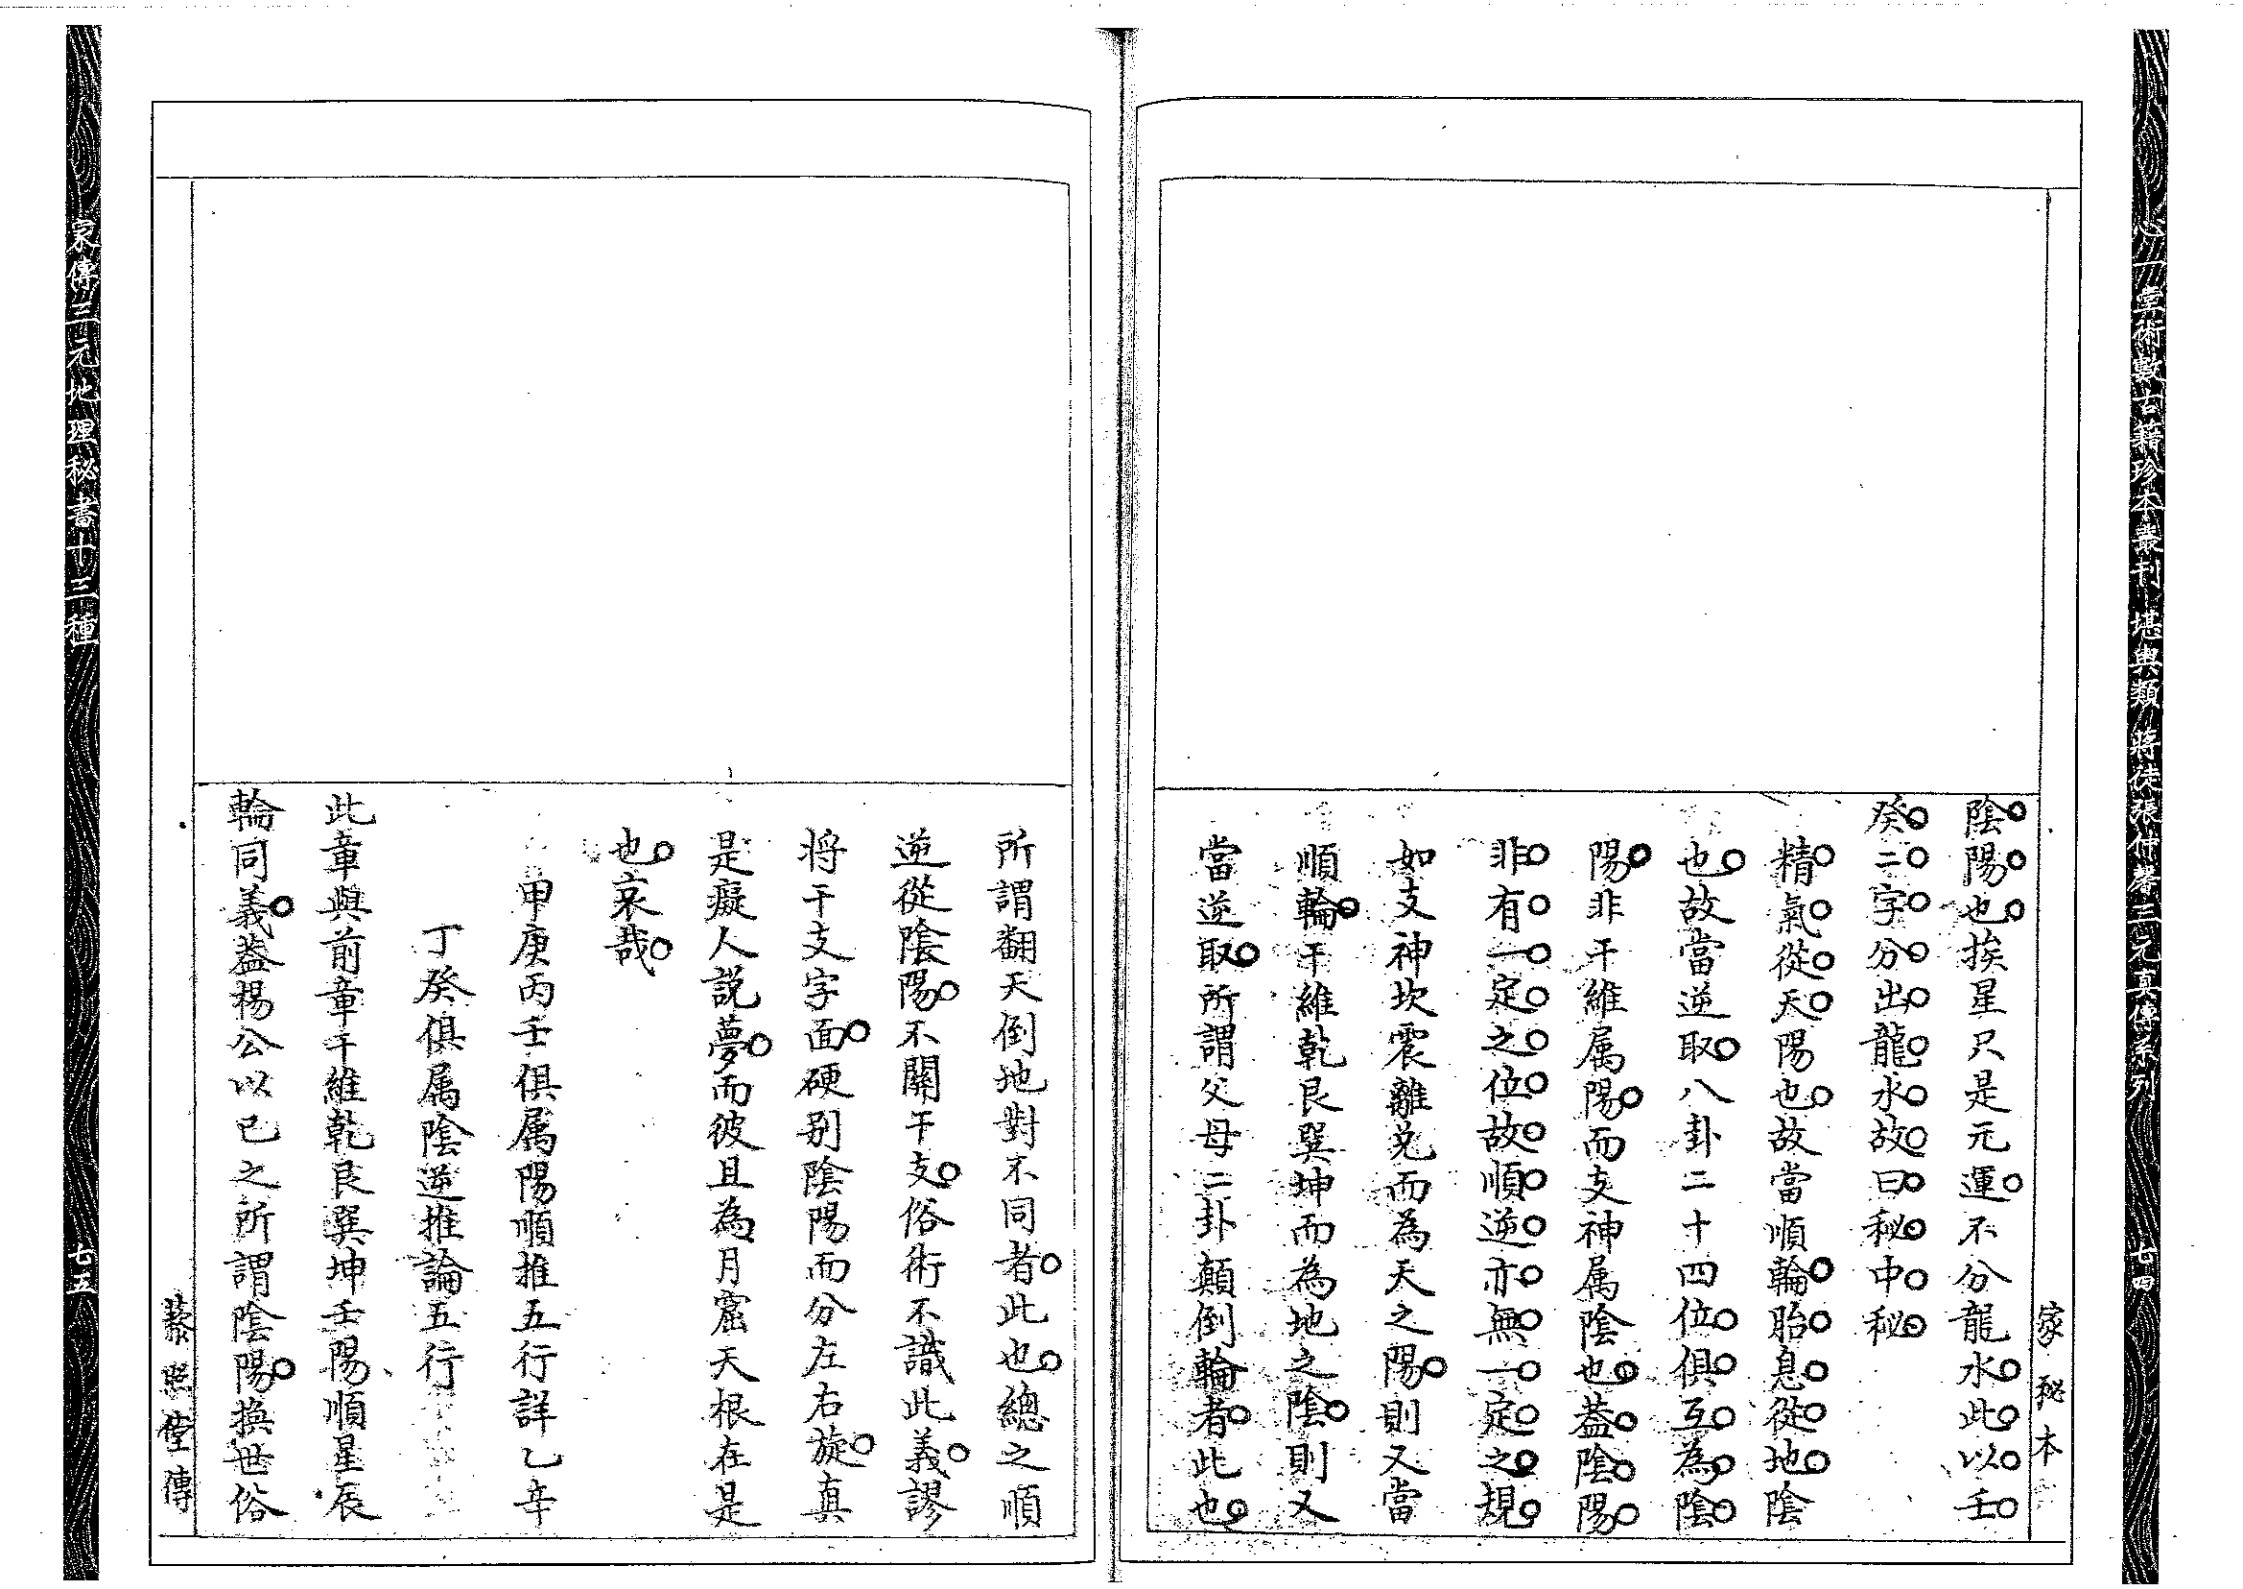 心一堂術數古籍珍本叢刊 堪輿類 蔣徒張仲馨三元真傳系列
七四
家秘本
陰陽也挨星只是元運不分龍水此以壬
癸二字分出龍水故曰秘中秘
精氣從天陽也故當順輪胎息從地陰
也故當逆取八卦二十四位俱互為陰
陽非干維属陽而支神属陰也蓋陰陽
非有一定之位故順逆亦無一定之規
如支神坎震離兌而為天之陽則又當
順輪干維乾艮巽坤而為地之陰則又
當逆取所謂父母二卦顛倒輪者此也
所謂翻天倒地對不同者此也總之順
逆從陰陽不關干支俗術不識此義謬
将干支字面硬别陰陽而分左右旋真
是癡人説夢而彼且為月窟天根在是
也哀哉
甲庚丙壬俱属陽順推五行詳乙辛
丁癸俱属陰逆推論五行
此章與前章干維乾艮巽坤壬陽順星辰
輪同義蓋楊公以己之所謂陰陽換世俗
藜照堂傳
家傳三元地理秘書十三種
七五